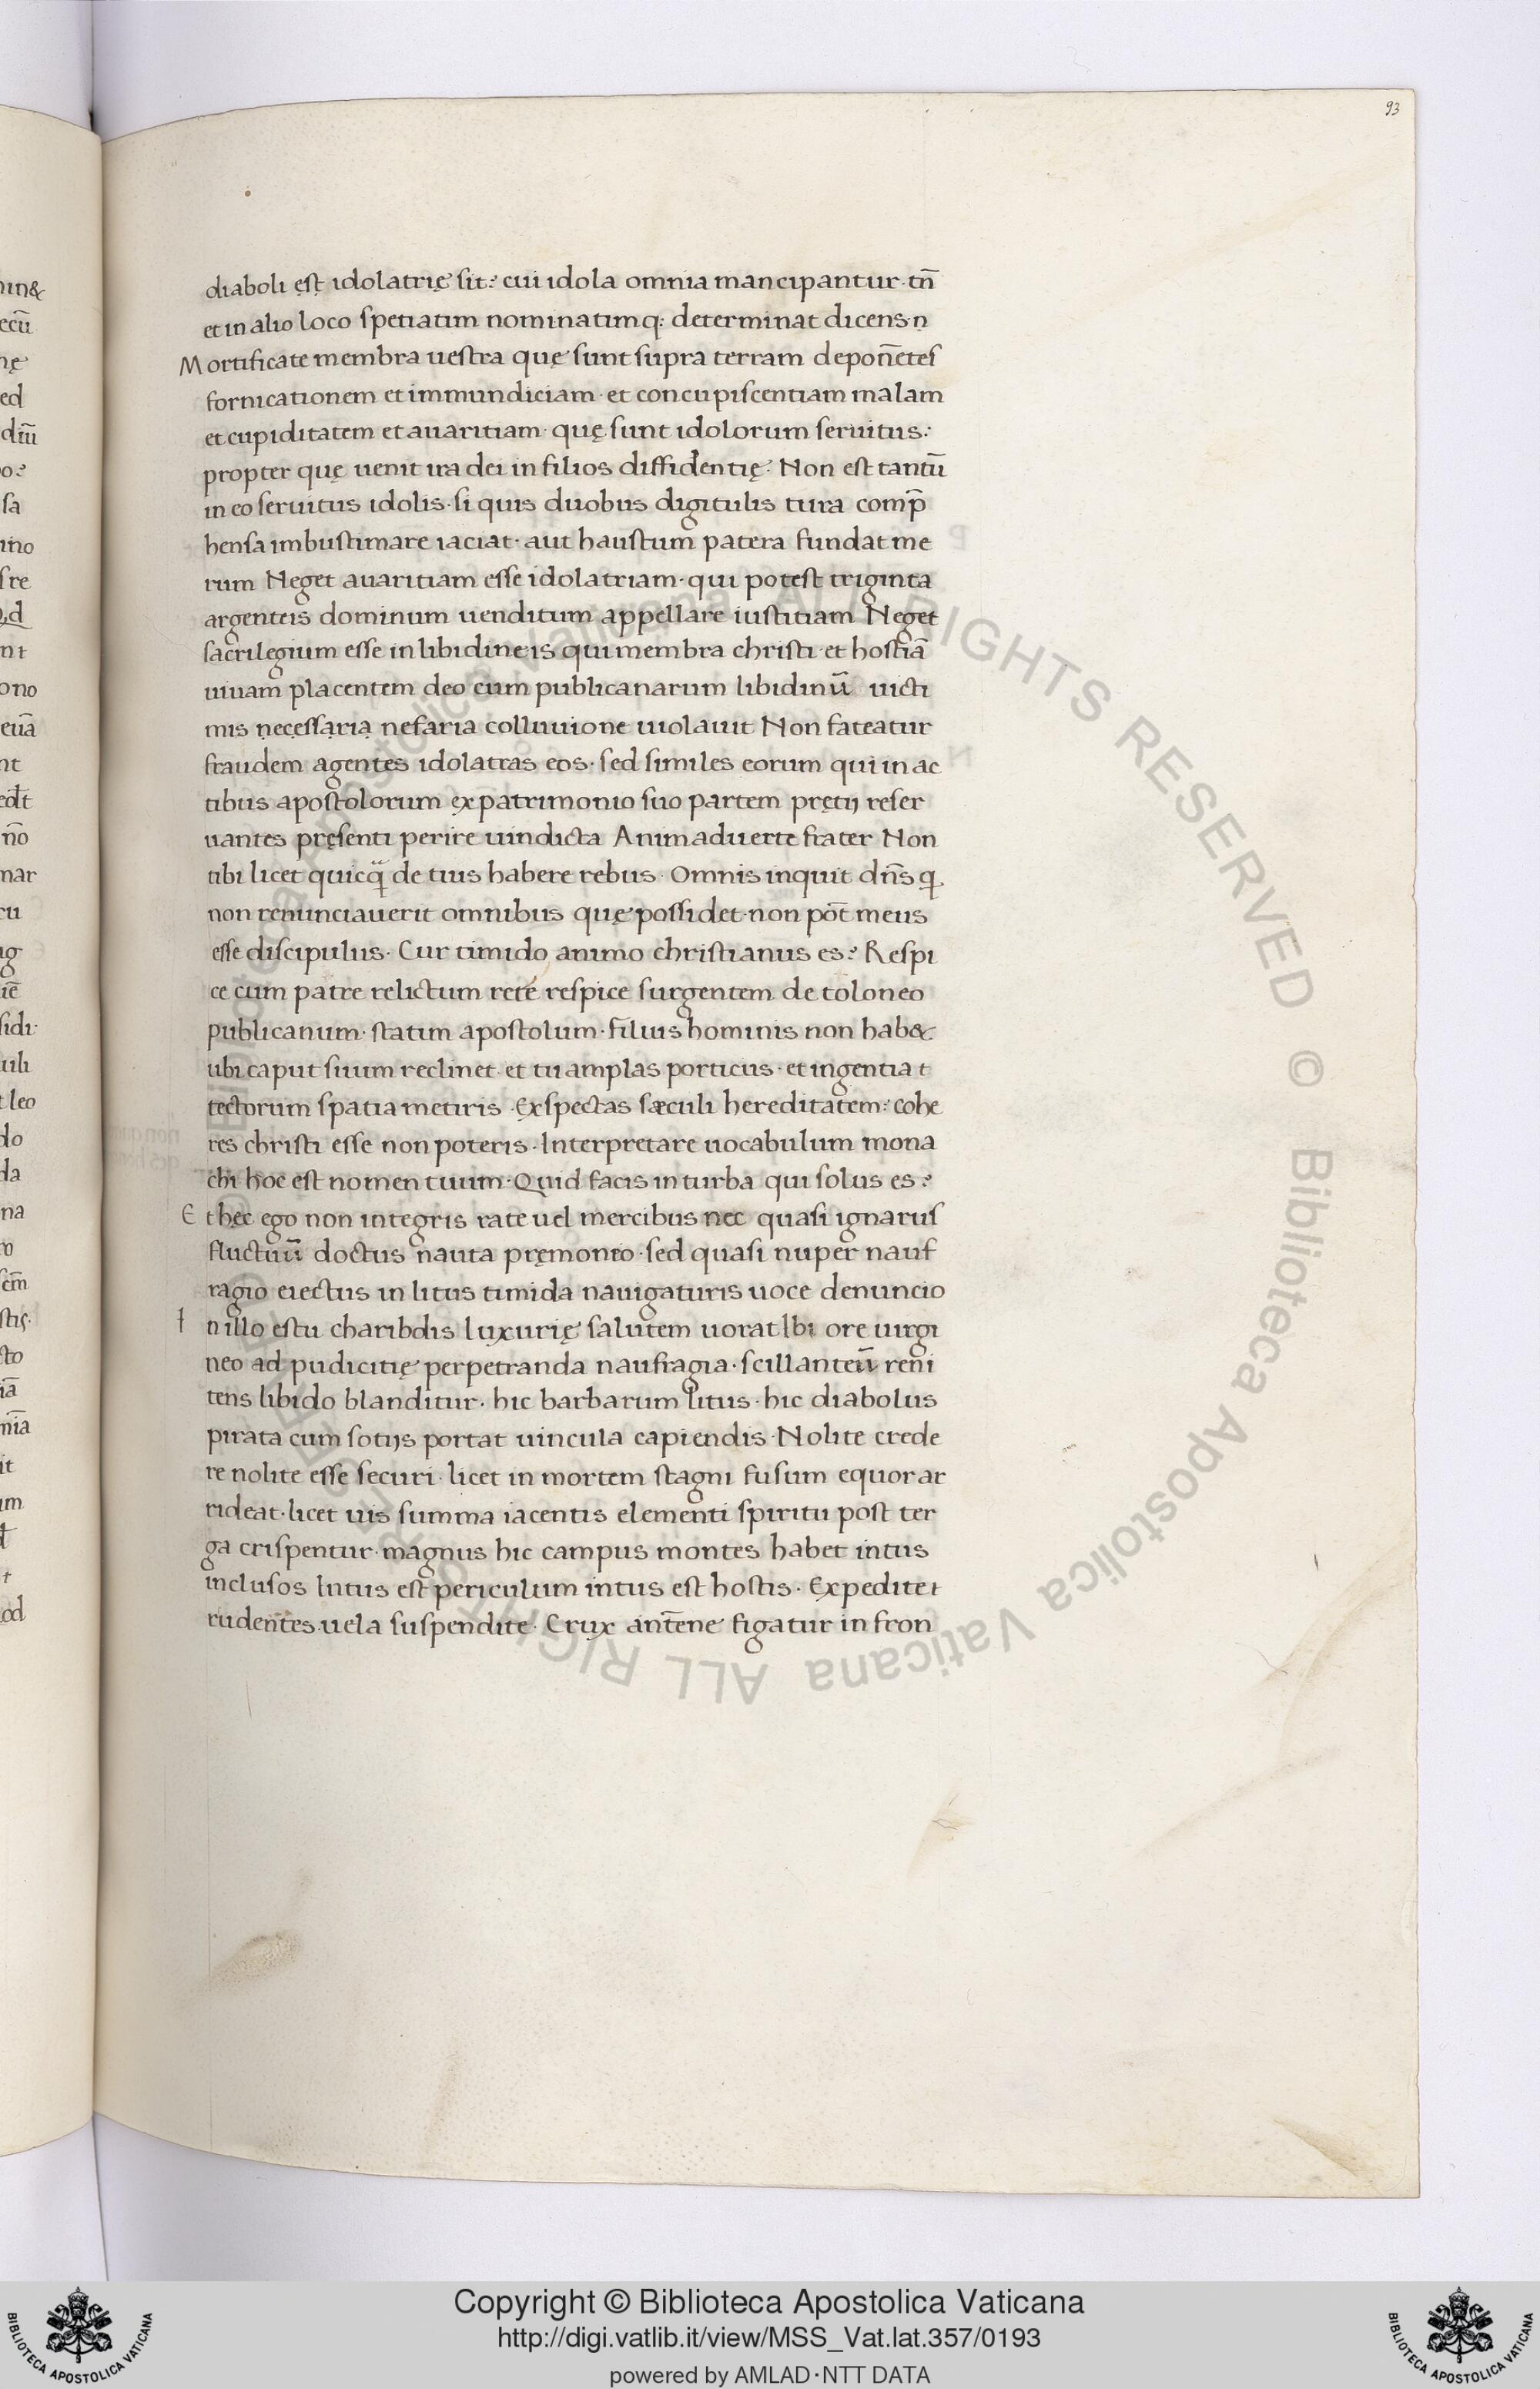 93
diaboli est idolatrię sit? cui idola omnia mancipantur. tn̄
et in alio loco spetiatim nominatimq: determinat dicens. n
Mortificate membra uestra quę sunt supra terram depon̄etes
fornicationem et immundiciam· et concupiscentiam malam
et cupiditatem et auaritiam· quę sunt idolorum seruitus:·
propter quę uenit ira dei in filios diffidentię? Non est tantū
in eo seruitus idolis· si quis duobus digitulis tura comp̄
hensa imbustimare iaciat· aut haustum patera fundat me
rum Neget auaritiam esse idolatriam· qui potest triginta
argenteis dominum uenditum appellare iustitiam Neget
sacrilegium esse in libidine is qui membra christi et hostiā
uiuam placentem deo cum publicanarum libidinū uicti
mis necessaria nefaria colluuione uiolauit Non fateatur
fraudem agentes idolatras eos· sed similes eorum qui in ac
tibus apostolorum ex patrimonio suo partem pręcij reser
uantes pręsenti perire uindicta Animaduerte frater Non
tibi licet quicq̄ de tuis habere rebus· Omnis inquit dn̄s q
non renunciauerit omnibus quę possidet· non pōt meus
esse discipulus· Cur timido animo christianus es? Respi
ce cum patre relictum rete respice surgentem de toloneo
publicanum· statim apostolum· filius hominis non hab&
ubi caput suum reclinet et tu amplas porticus· et ingentia t
tectorum spatia metiris· Exspectas sæculi hereditatem? cohe
res christi esse non poteris· Interpretare uocabulum mona
chi hoc est nomen tuum· Quid facis in turba qui solus es?
Et hec ego non integris rate uel mercibus nec quasi ignarus
fluctuū doctus nauta pręmonto· sed quasi nuper nauf
ragio eiectus in litus timida nauigaturis uoce denuncio
In illo estu charibdis luxurię salutem uorat Ibi ore uirgi
neo ad pudicitię perpetranda naufragia· scillanteū reni
tens libido blanditur· hic barbarum litus· hic diabolus
pirata cum sotijs portat uincula capiendis· Nolite crede
re nolite esse securi· licet in mortem stagni fusum equor ar
rideat· licet uis summa iacentis elementi spiritu post ter
ga crispentur· magnus hic campus montes habet intus
inclusos Intus est periculum intus est hostis· Expedite t
rudentes uela suspendite· Crux ant̄ene figatur in fron
Copyright © Biblioteca Apostolica Vaticana
http://digi.vatlib.it/view/MSS_Vat.lat.357/0193
powered by AMLAD·NTT DATA